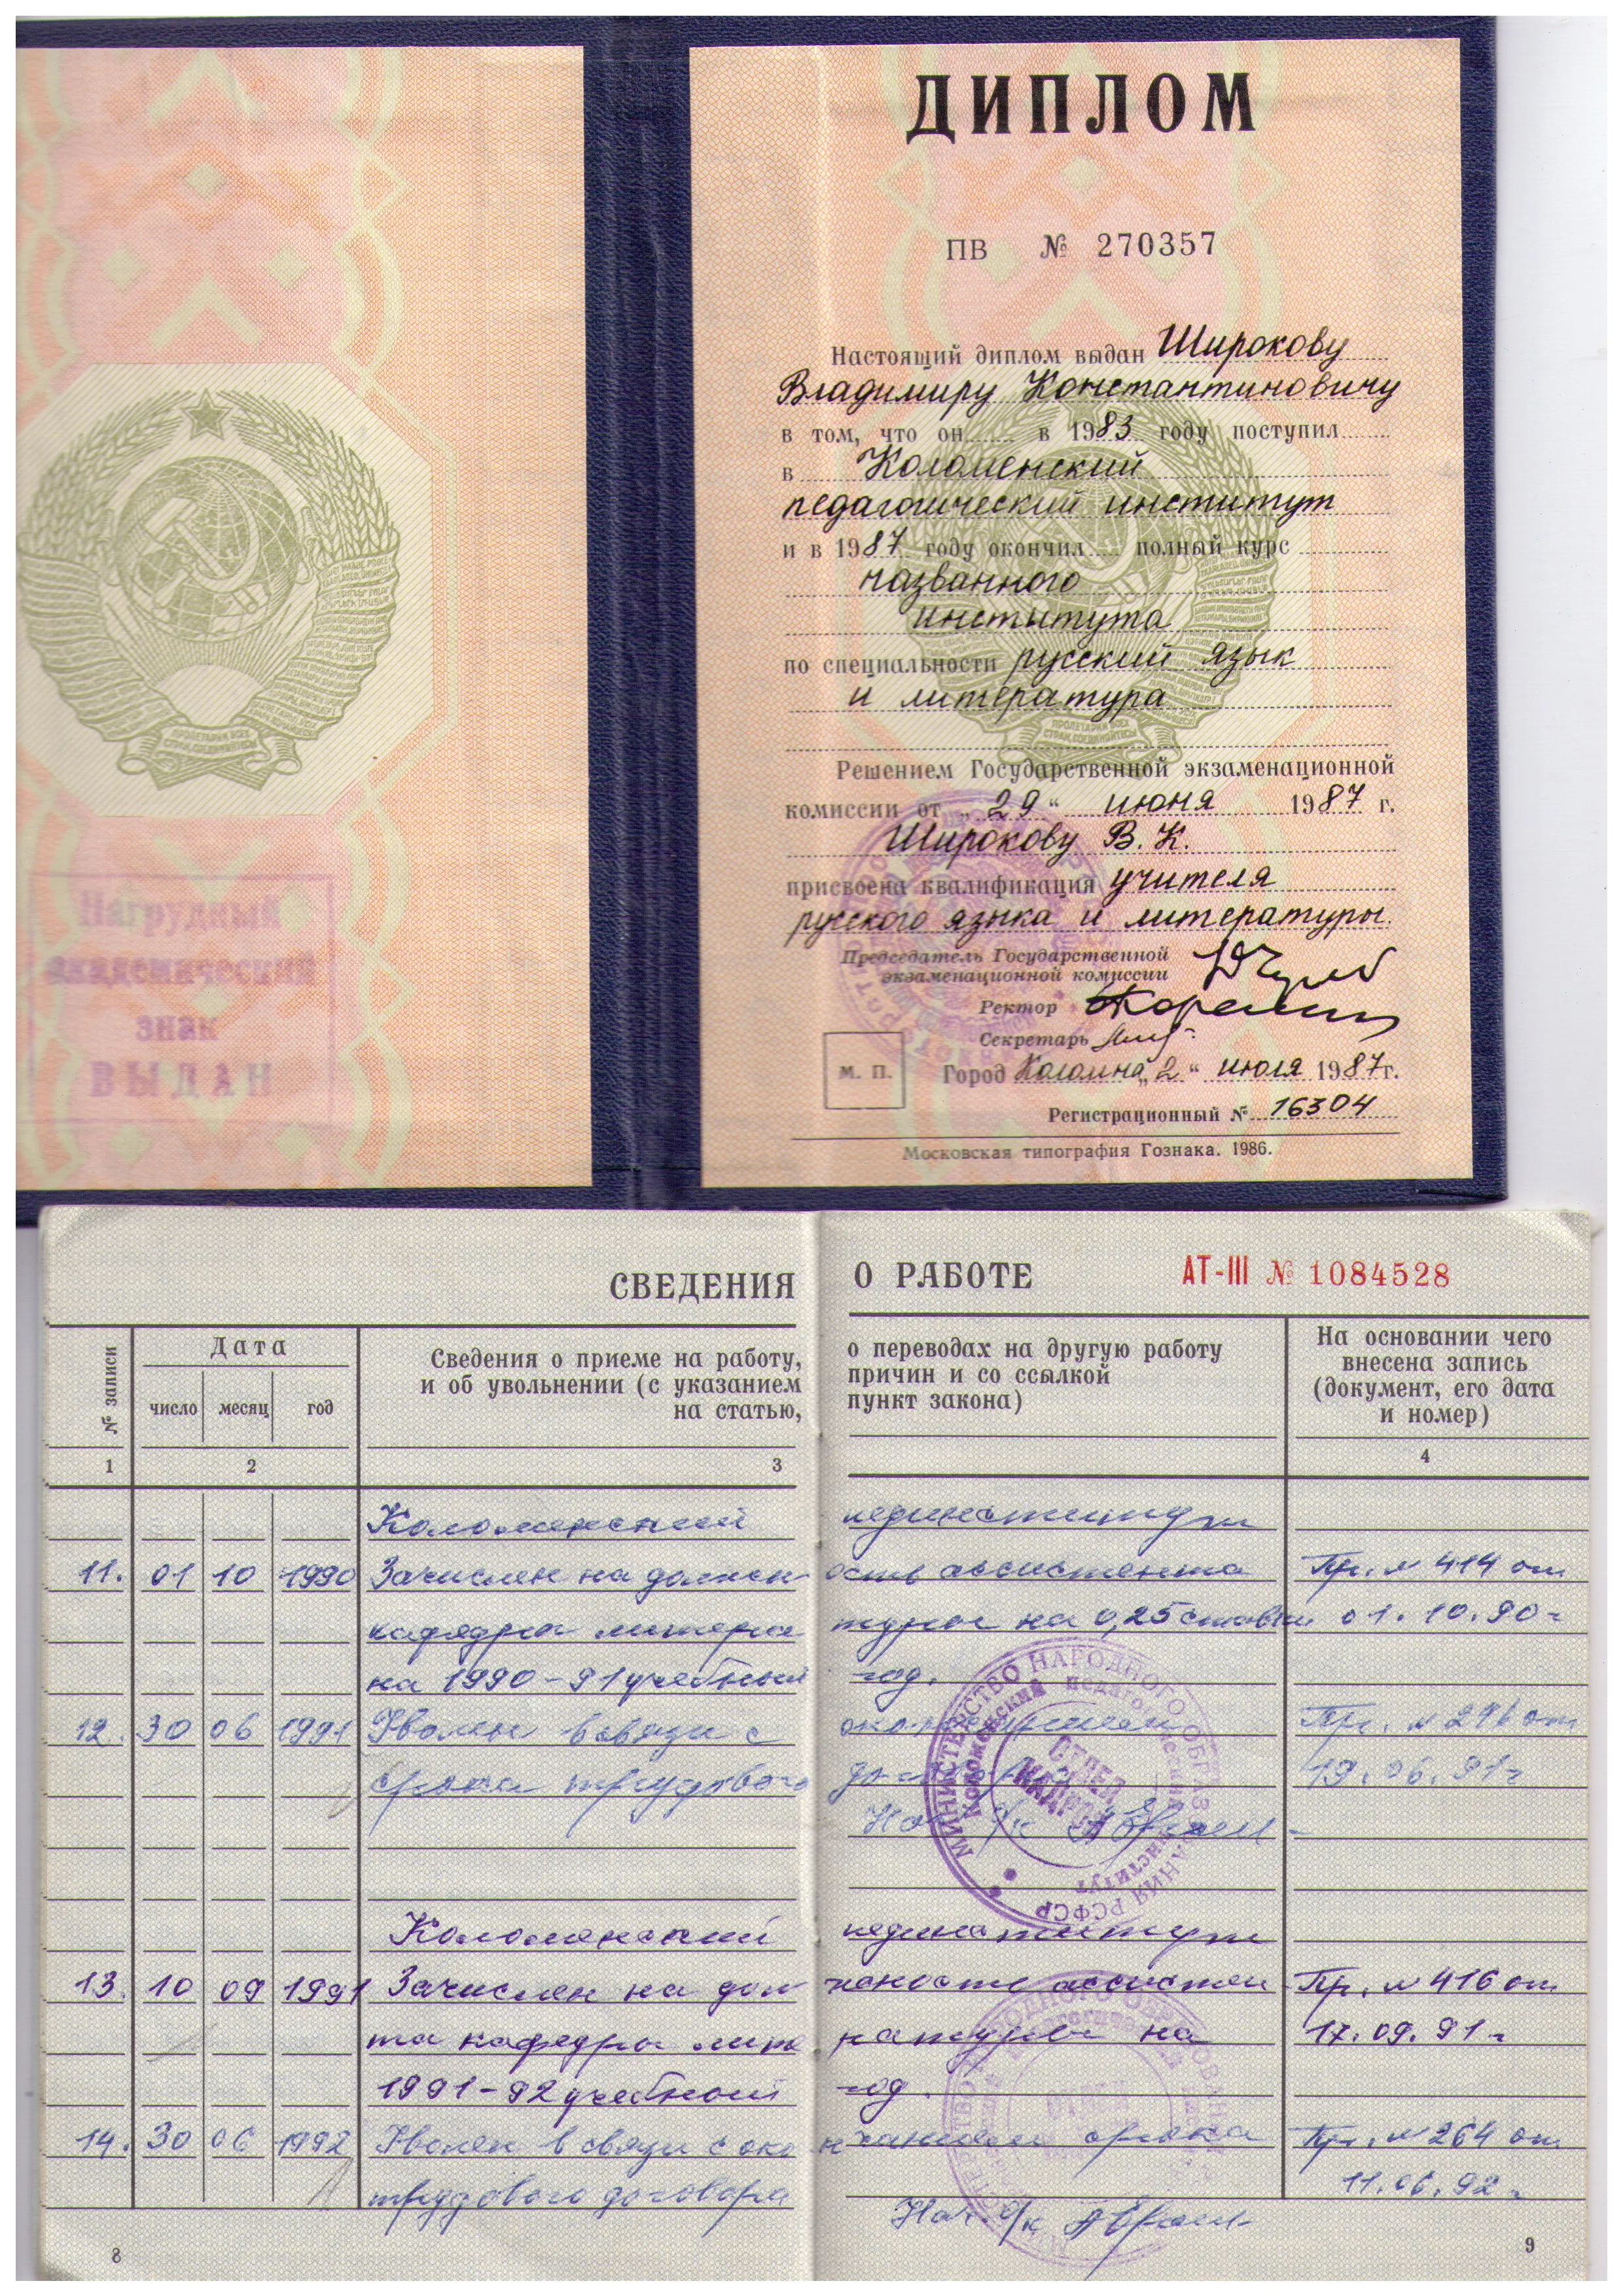 Нагрудный
академический
знак
ВЫДАН
ДИПЛОМ
ПВ № 270357
Настоящий диплом выдан Широкову
Владимиру Константиновичу
в том, что он в 1983 году поступил
в Коломенский
педагогический институт
и в 1987 году окончил полный курс
названного
института
по специальности русский язык
и литература
Решением Государственной экзаменационной
комиссии от „29“ июня 1987 г.
Широкову В. К.
присвоена квалификация учителя
русского языка и литературы.
Председатель Государственной
экзаменационной комиссии
Ректор
Секретарь
М. П.
Город Коломна „2“ июля 1987г.
Регистрационный № 16304
Московская типография Гознака. 1986.
СВЕДЕНИЯ О РАБОТЕ АТ-III № 1084528
№ записи
Дата
число месяц год
Сведения о приеме на работу, о переводах на другую работу
и об увольнении (с указанием причин и со ссылкой
на статью, пункт закона)
На основании чего
внесена запись
(документ, его дата
и номер)
1 2 3 4
Коломенский пединститут
11. 01 10 1990 Зачислен на должность ассистента Пр. № 414 от
кафедры литературы на 0,25 ставки 01.10.90 г
на 1990-91 учебный год.
12. 30 06 1991 Уволен в связи с окончанием Пр. № 296 от
срока трудового договора 19.06.91 г
Нач о/к
МИНИСТЕРСТВО НАРОДНОГО ОБРАЗОВАНИЯ РСФСР
Коломенский педагогический институт
ОТДЕЛ
КАДРОВ
Коломенский пединститут
13. 10 09 1991 Зачислен на должность ассистен Пр. № 416 от
та кафедры литературы на 17.09.91 г
1991-92 учебный год.
14. 30 06 1992 Уволен в связи с окончанием срока Пр. № 264 от
трудового договора 11.06.92 г
Нач. о/к
8 9